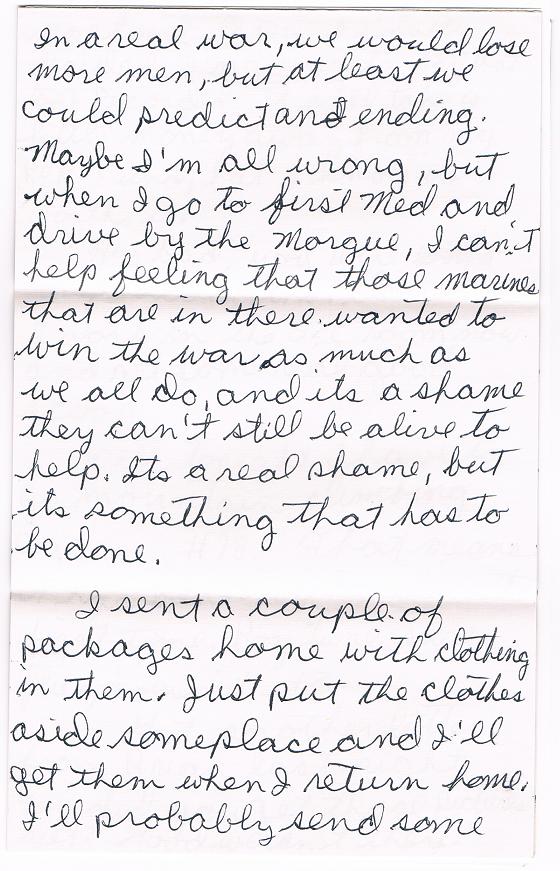 In a real war, we would lose
more men, but at least we
could predict and ending.
Maybe I'm all wrong, but
when I go to first Med and
drive by the Morgue, I can't
help feeling that those marines
that are in there wanted to
win the war as much as
we all do, and its a shame
they can't still be alive to
help. Its a real shame, but
its something that has to
be done.
I sent a couple of
packages home with clothing
in them. Just put the clothes
aside someplace and I'll
get them when I return home.
I'll probably send some